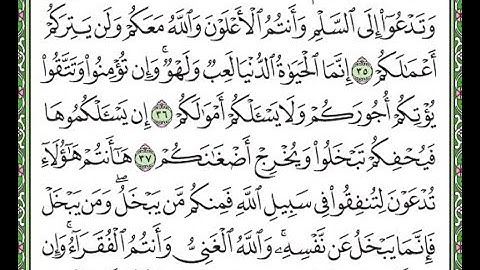 وَتَدْعُوٓا۟ إِلَى ٱلسَّلْمِ وَأَنتُمُ ٱلْأَعْلَوْنَ وَٱللَّهُ مَعَكُمْ وَلَن يَتِرَكُمْ
أَعْمَٰلَكُمْ ٣٥ إِنَّمَا ٱلْحَيَوٰةُ ٱلدُّنْيَا لَعِبٌ وَلَهْوٌ ۚ وَإِن تُؤْمِنُوا۟ وَتَتَّقُوا۟
يُؤْتِكُمْ أُجُورَكُمْ وَلَا يَسْـَٔلْكُمْ أَمْوَٰلَكُمْ ٣٦ إِن يَسْـَٔلْكُمُوهَا
فَيُحْفِكُمْ تَبْخَلُوا۟ وَيُخْرِجْ أَضْغَٰنَكُمْ ٣٧ هَٰٓأَنتُمْ هَٰٓؤُلَآءِ
تُدْعَوْنَ لِتُنفِقُوا۟ فِى سَبِيلِ ٱللَّهِ فَمِنكُم مَّن يَبْخَلُ ۖ وَمَن يَبْخَلْ
فَإِنَّمَا يَبْخَلُ عَن نَّفْسِهِۦ ۚ وَٱللَّهُ ٱلْغَنِىُّ وَأَنتُمُ ٱلْفُقَرَآءُ ۚ وَإِن